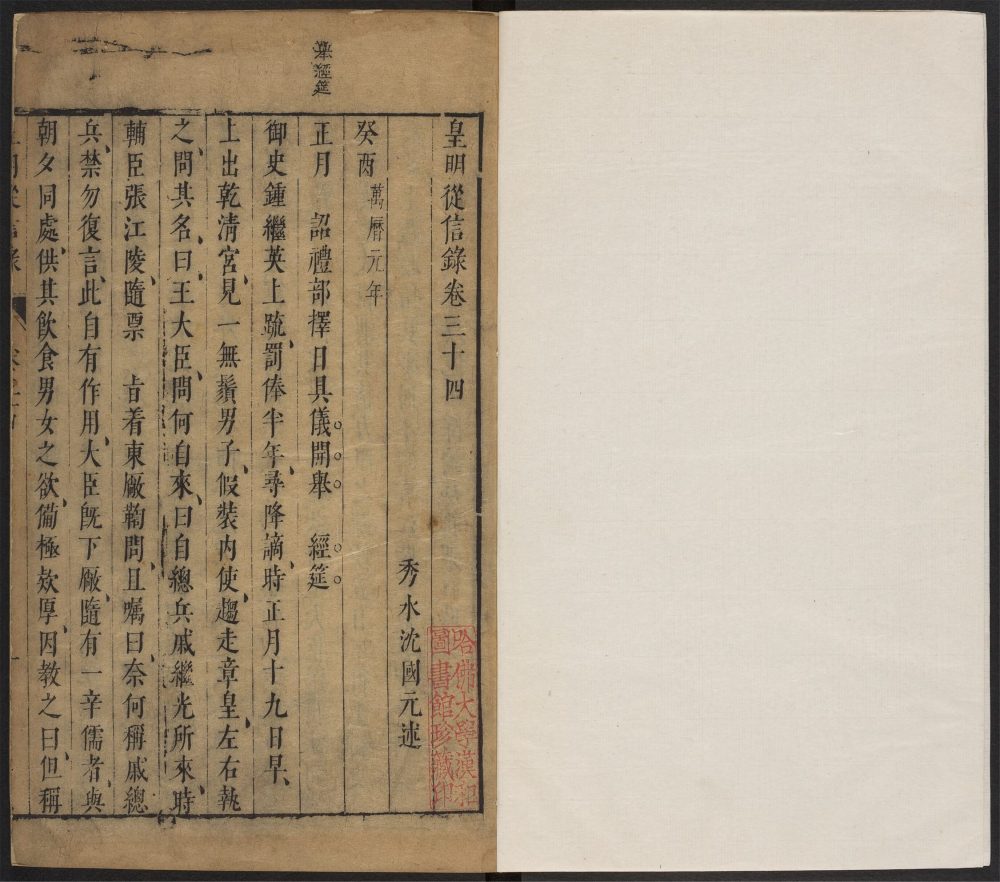 舉經筵
皇明從信錄卷三十四
秀水沈國元述
癸酉 萬曆元年
正月 詔禮部擇日具儀開舉 經筵
御史鍾繼英上䟽、罰俸半年、尋降謫、時正月十九日早、
上出乾清宮、見一無鬚男子、假裝內使、趨走章皇、左右執
之、問其名、曰、王大臣、問何自來、曰自總兵戚繼光所來、時
輔臣張江陵、隨票 㫖着東厰鞫問、且囑曰、奈何稱戚總
兵、禁勿復言、此自有作用、大臣旣下厰、隨有一辛儒者、與
朝夕同處、供其飲食男女之欲、備極欵厚、因教之曰、但稱
從信錄
哈佛大學漢和
圖書館珍藏印